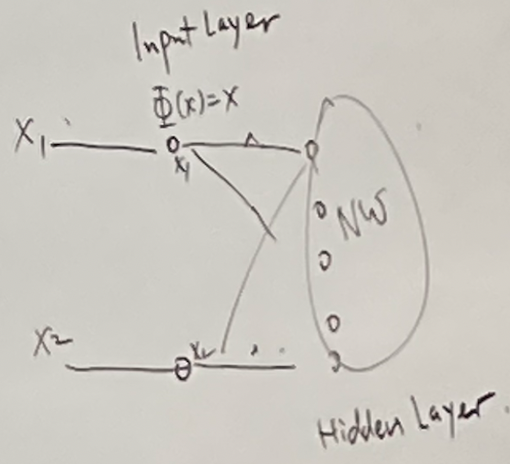 Input Layer
Φ(x)=x
X1
x1
NW
X2
x2
Hidden Layer